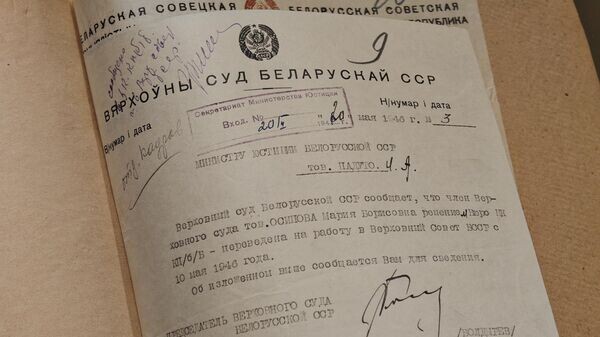 БЕЛАРУСКАЯ СОВЕЦКАЯ БЕЛОРУССКАЯ СОВЕТСКАЯ
РЕСПУБЛИКА
9
ВЯРХОЎНЫ СУД БЕЛАРУСКАЙ ССР
Н/нумар і дата
Секретариат Министерства Юстиции
Вход. №
20 мая 1946 г. в 3
Н/нумар і дата
отд. кадров
МИНИСТРУ ЮСТИЦИИ БЕЛОРУССКОЙ ССР
тов. ПАДУТО. И. Я.
Верховный суд Белорусской ССР сообщает, что член Вер-
ховного суда тов. ОСИПОВА Мария Борисовна решением Бюро ЦК
КП/б/Б - переведена на работу в Верховный Совет БССР с
10 мая 1946 года.
Об изложенном выше сообщается Вам для сведения.
ПРЕДСЕДАТЕЛЬ ВЕРХОВНОГО СУДА
БЕЛОРУССКОЙ ССР